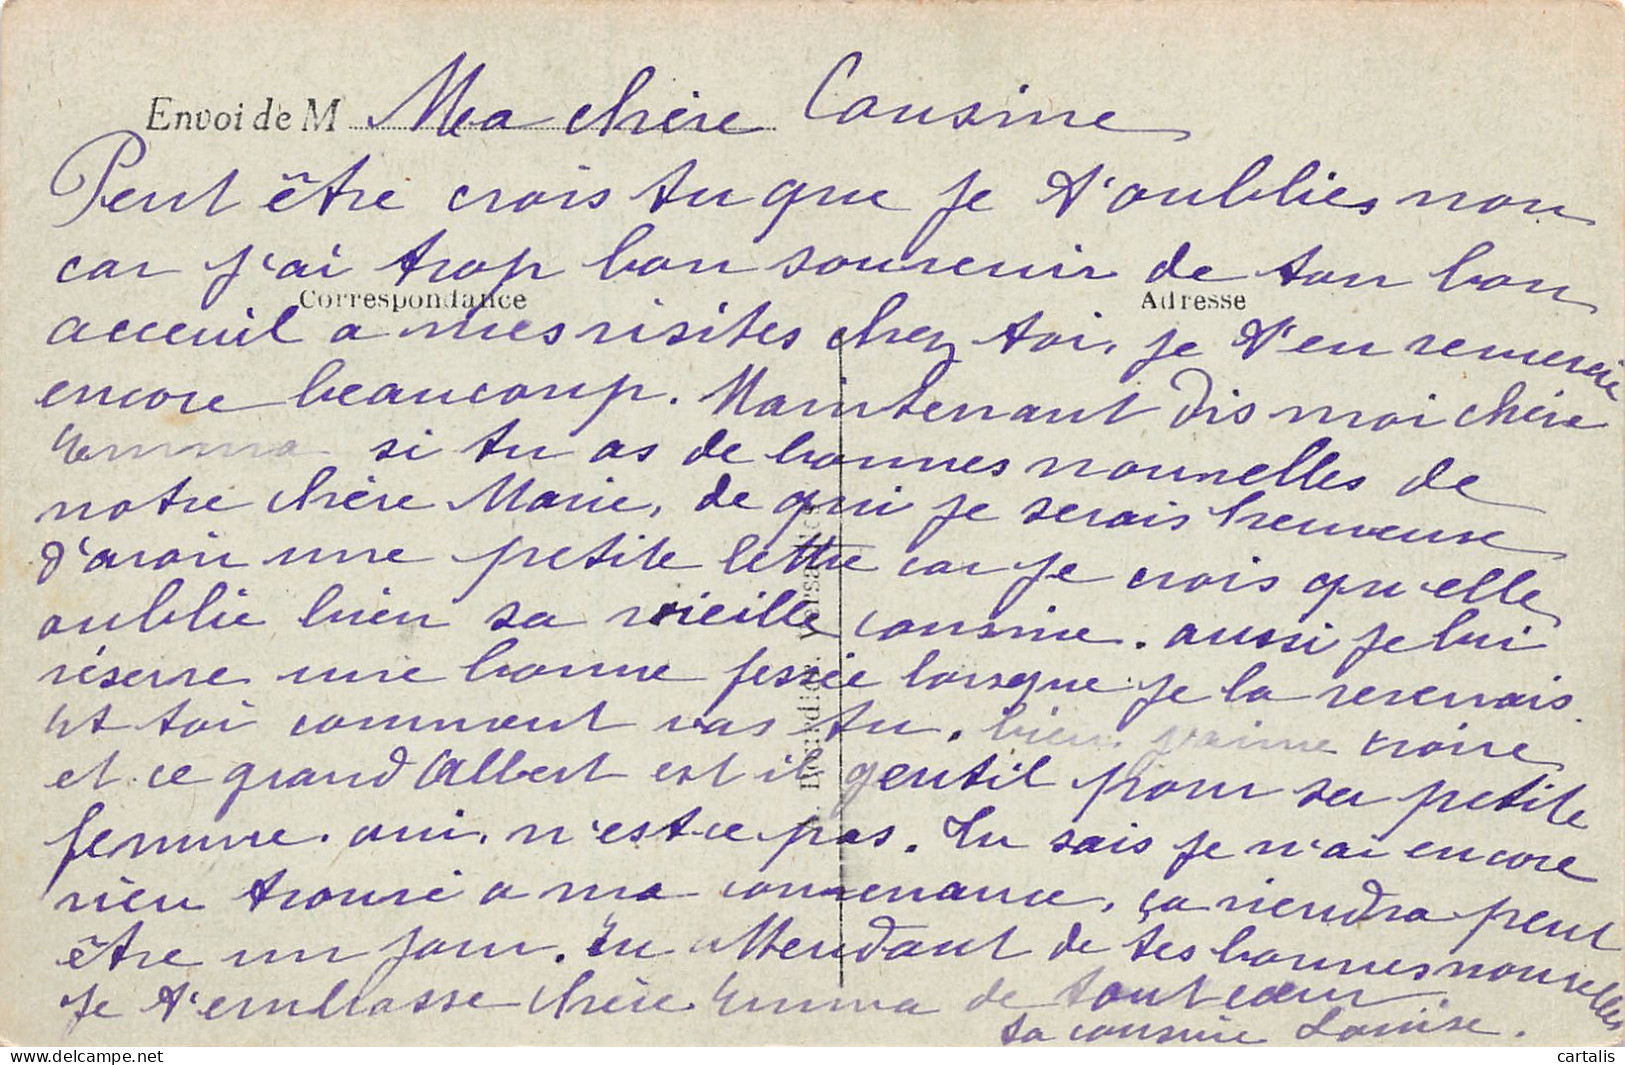 Envoi de M Ma chère Cousine
Peut être crois tu que je t'oublies non
car j'ai trop bon souvenir de ton bon
Correspondance Adresse
acceuil a mes visites chez toi, je t'en remercie
encore beaucoup. Maintenant dis moi chère
Emma si tu as de bonnes nouvelles de
notre chère Marie, de qui je serais heureuse
d'avoir une petite lettre car je crois qu'elle
oublie bien sa vieille cousine. aussi je lui
réserve une bonne fessée lorsque je la reverrais.
Et toi comment vas tu, bien j'aime croire
et ce grand Albert est il gentil pour sa petite
femme. oui, n'est ce pas. Tu sais je n'ai encore
rien trouvé a ma convenance, ça viendra peut
être un jour. En attendant de tes bonnes nouvelles
je t'embrasse chère Emma de tout cœur.
ta cousine Louise.
cartalis